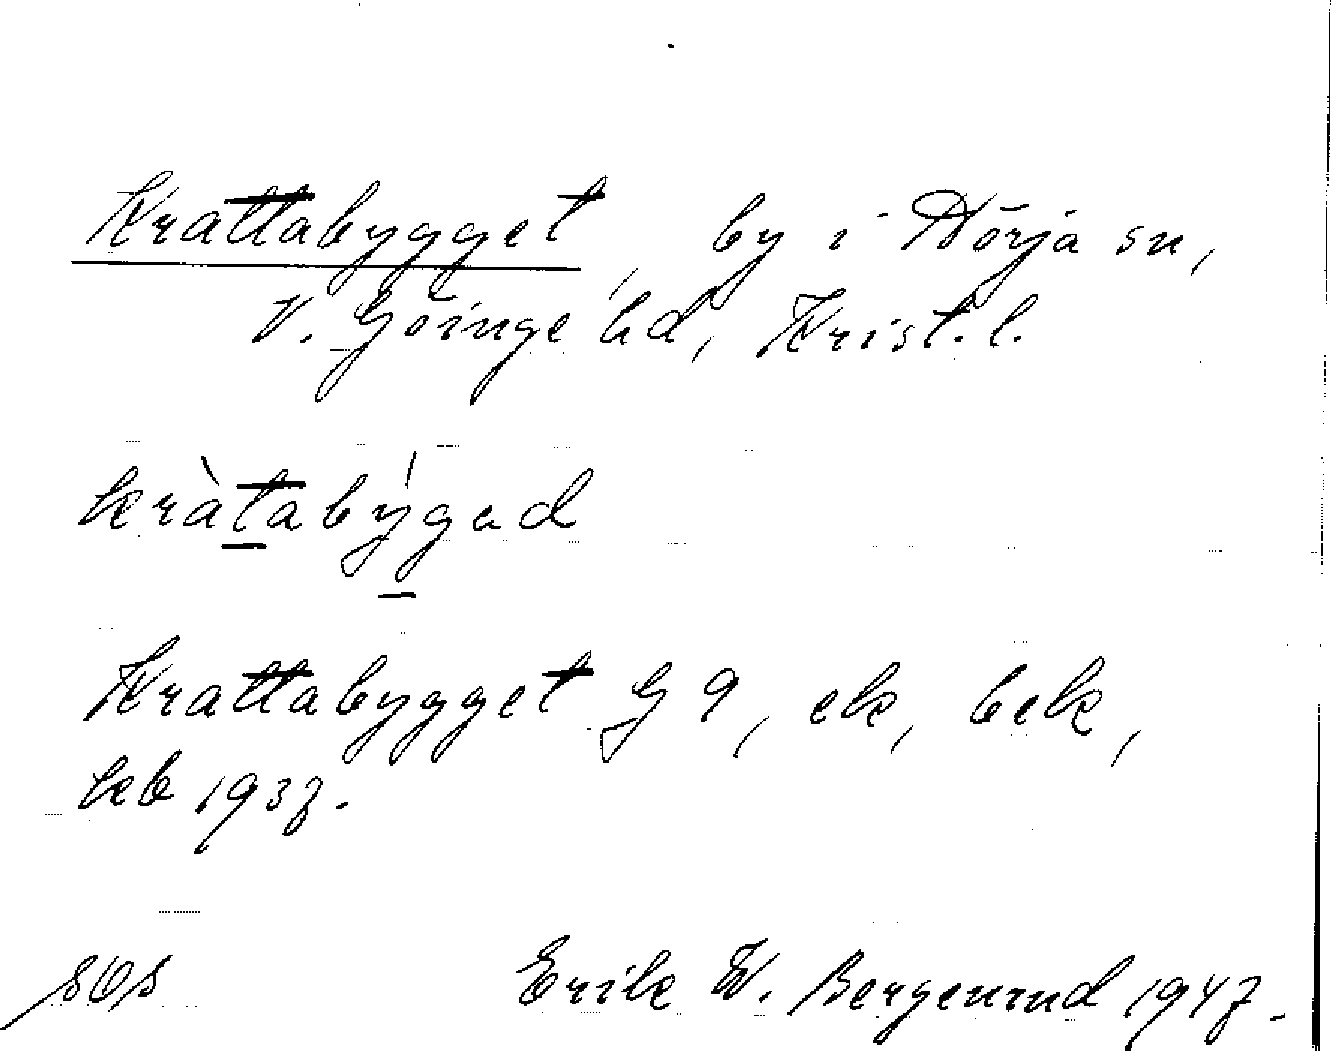 Krattabygget, by i Nörja sn,
V. Göinge hd, Krist. l.
kràtabýgad
Krattabygget G 9, ek, bek,
hcb 1937.
SOS Erik W. Bergenrud 1947.